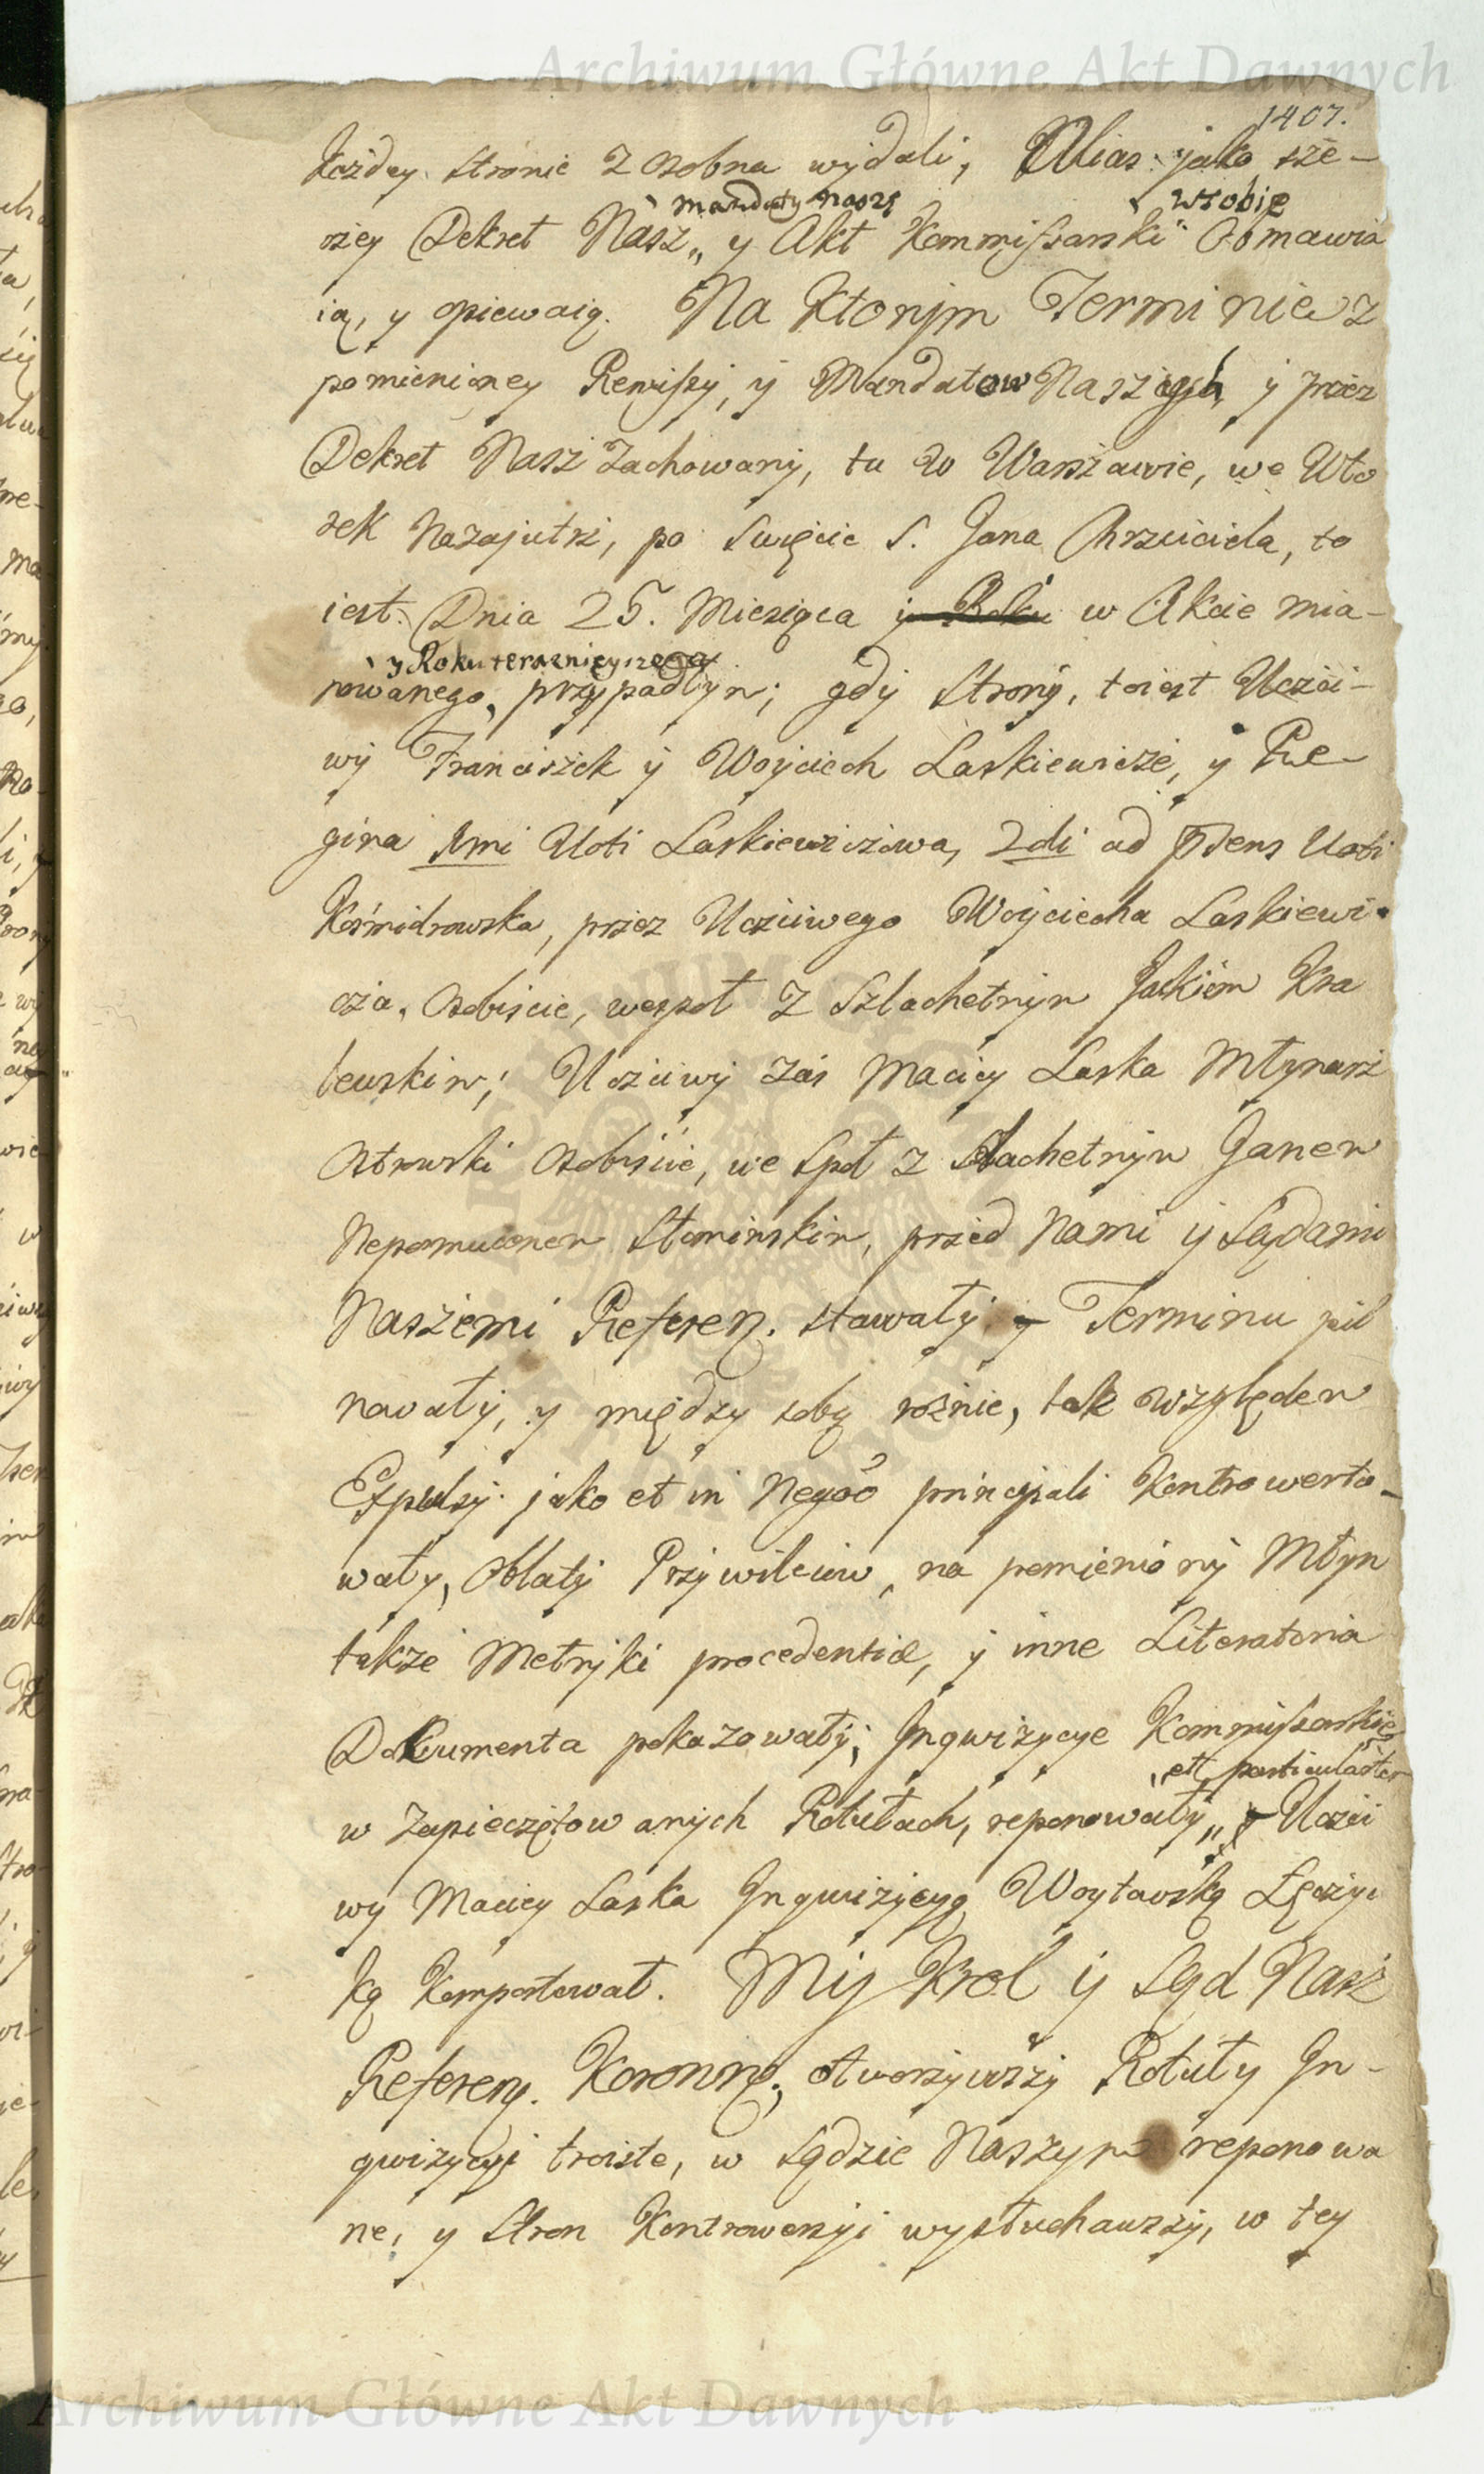 Archiwum Główne Akt Dawnych
1407.
każdey stronie z osobna wydali, Alias jako sze-
mandaty nasze w sobie
rzey Dekret Nasz,, y Akt Kommissarski Obmawia
ią, y opiewaią. Na Ktorym Terminie z
pomienioney Remissy, y Mandatow Naszych y przez
Dekret Nasz zachowany, tu w Warszawie, we Wto
rek Nazajutrz, po Swięcie S. Jana Chrzciciela, to
iest: Dnia 25. Miesiąca y Roku w Akcie mia-
y Roku teraznieyszego
nowanego, przypadłym; gdy Strony, toiest Uczci-
wy Franciszek y Woyciech Laskiewicze, y Re-
gina 1mi Voti Laskiewiczowa, 2di ad p̅dens Voti
Kośmidrowska, przez Uczciwego Woyciecha Laskiewi-
cza, Osobiscie, wespoł z Szlachetnym Jackiem Kra
lewskim; Uczciwy zaś Maciey Laska Młynarz
Ostrowski Osobiscie, we Społ z Slachetnym Janem
Nepomucenem Słominskim, przed Nami y Sądami
Naszemi Referen. stawały y Terminu pil
nowały, y między sobą rożnie, tak względem
Expulsy jako et in Negōō principali Kontrowerto-
wały, Oblaty Przywileiow, na pomieniony Młyn
także Metryki procedentiæ, y inne Literatoria
Dokumenta pokazowały; Inqwizycye Kommissarskie
et particulariter
w Zapieczętowanych Rotułach, reponowały,, y Uczci
wy Maciey Laska Inqwizycyą Woytowską Łęczyc
ką Komportował. My Krol y Sąd Nasz
Referen. Koronny, otworzywszy Rotuły In-
qwizycyi troiste, w Sądzie Naszym reponowa
ne, y Stron Kontrowersyi wysłuchawszy, w tey
Archiwum Główne Akt Dawnych